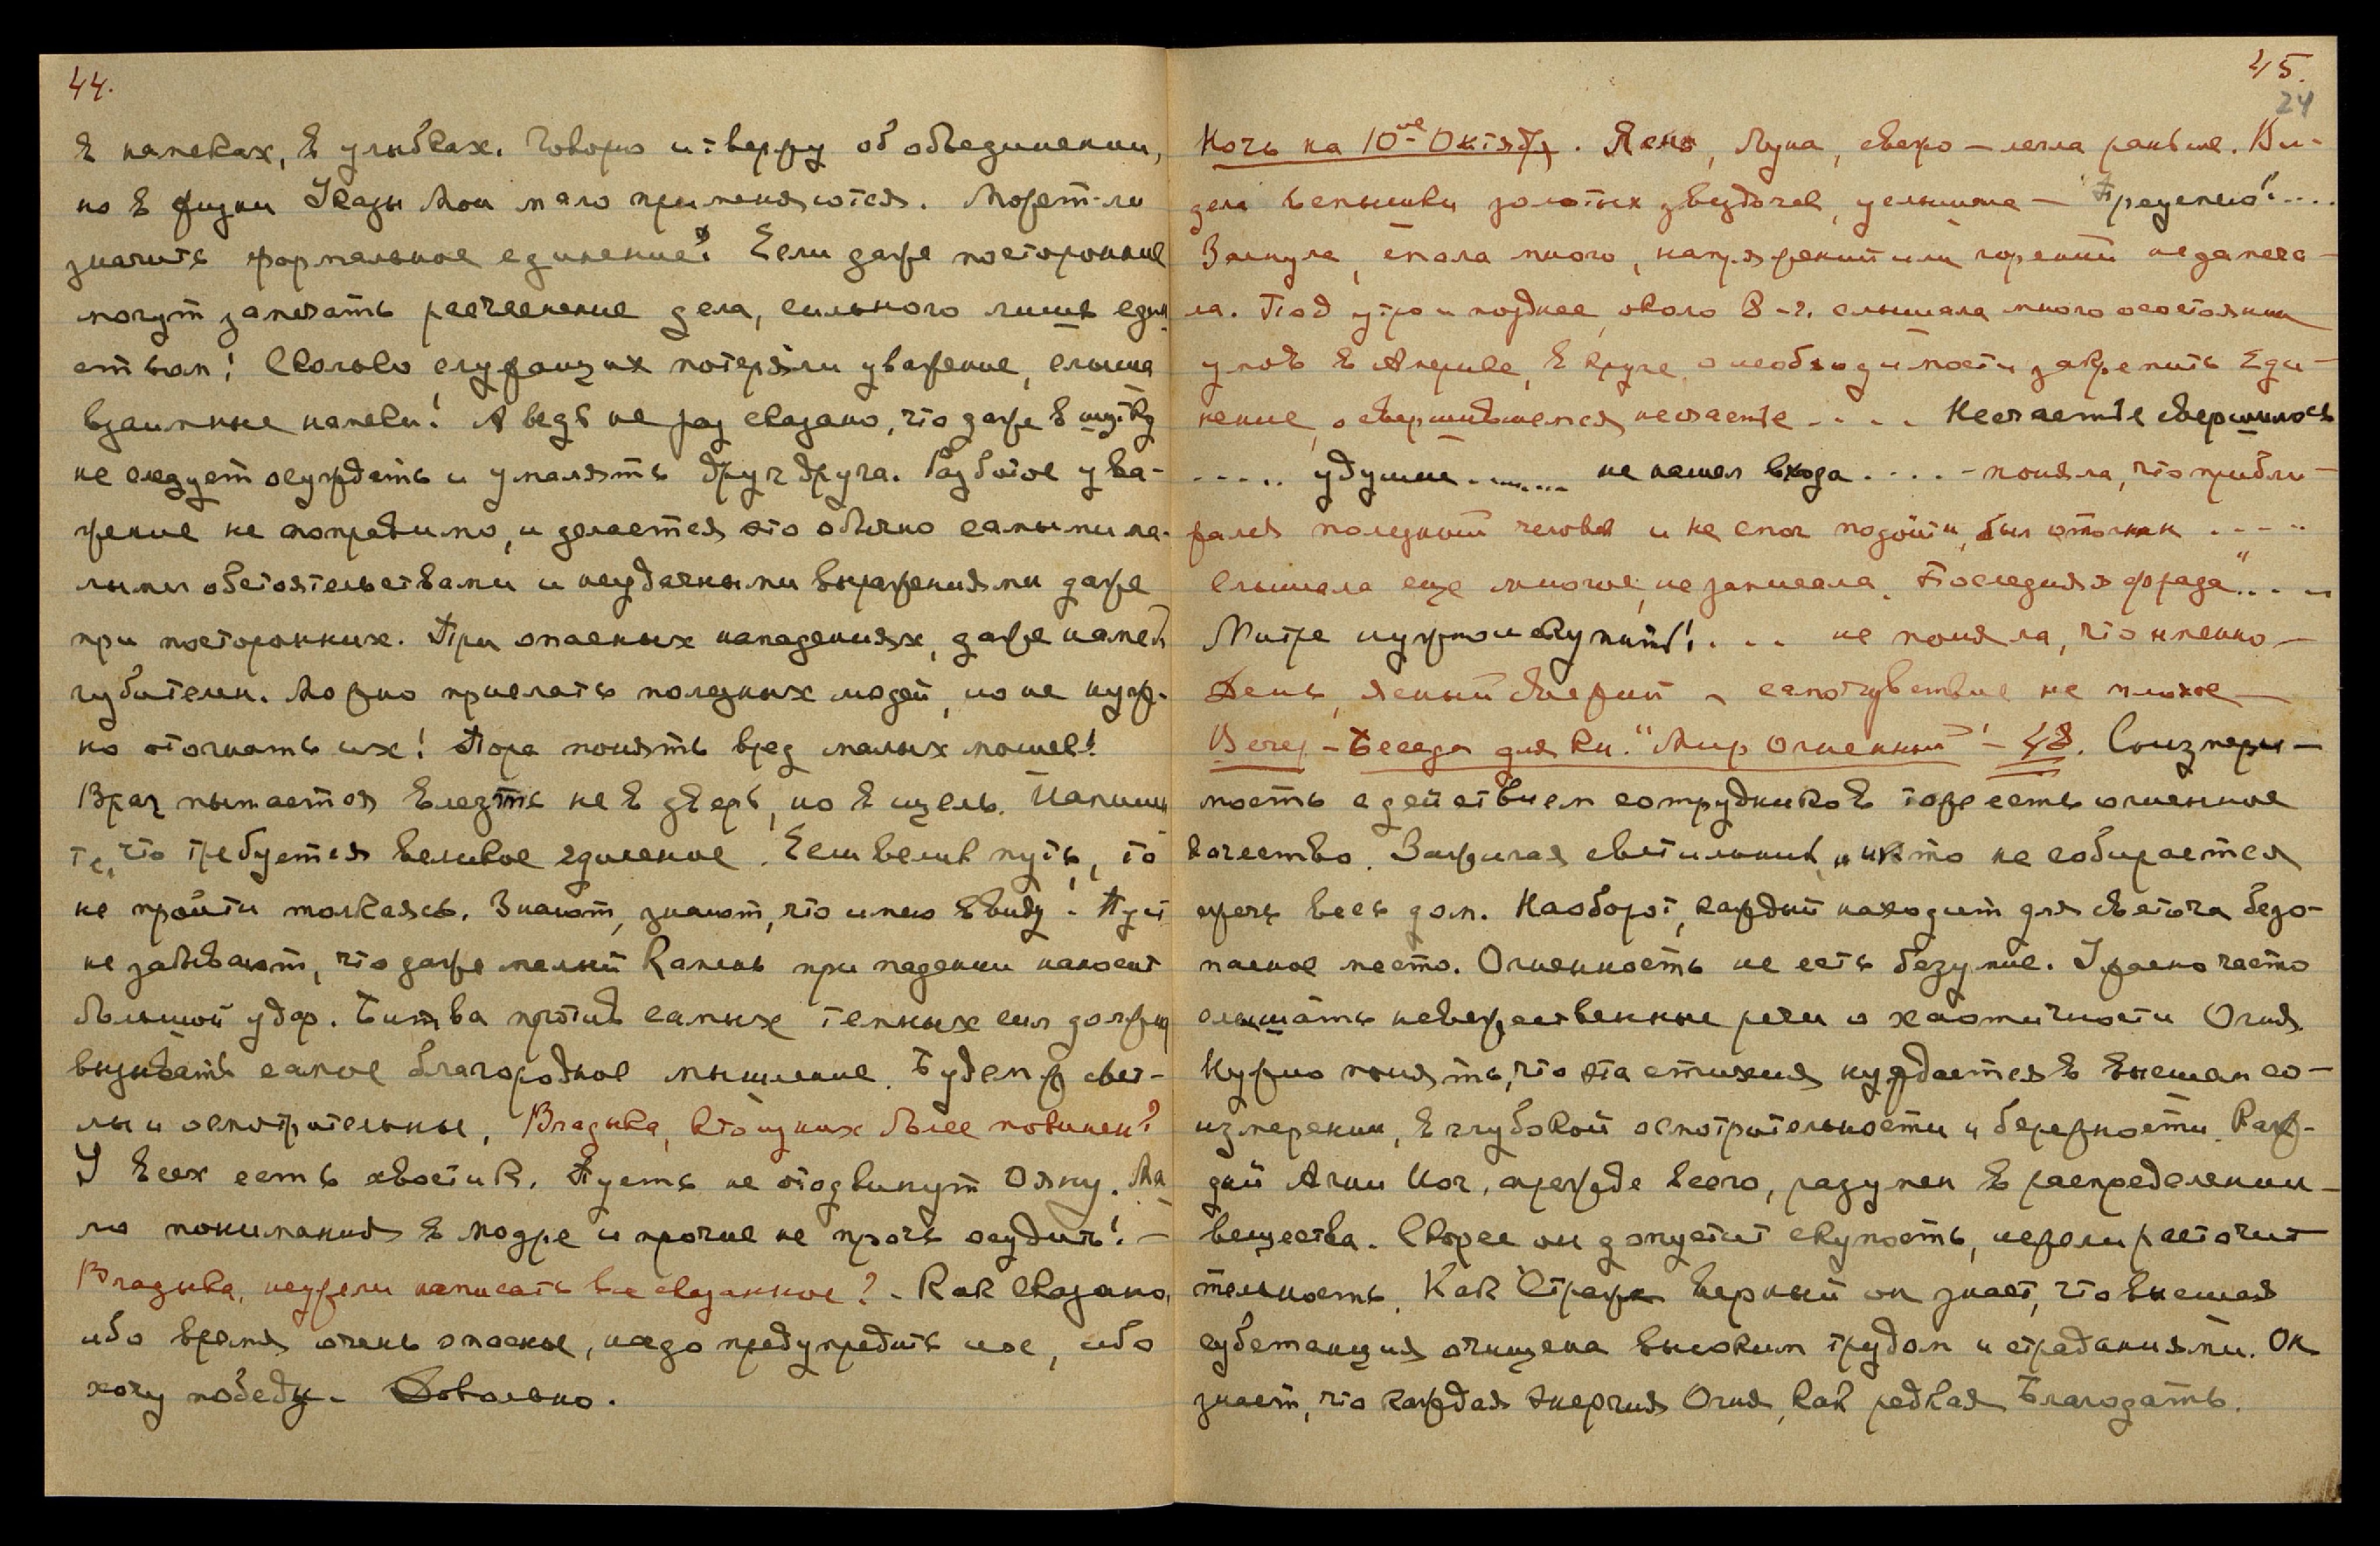 44.
в намеках, в улыбках. Говорю и твержу об объединении,
но в жизни Указы Мои мало применяются. Может-ли
значить формальное единение? Если даже посторонние
могут замечать расчленение дела, сильного лишь един
ством! Сколько служащих потеряли уважение, слыша
взаимные намеки! А ведь не раз сказано, что даже в шутку
не следует осуждать и умалять друг друга. Разбитое ува-
жение не поправимо, и делается это обычно самыми ма-
лыми обстоятельствами и неудачными выражениями даже
при посторонних. При опасных нападениях, даже намек
губителен. Можно прислать полезных людей, но не нуж-
но отогнать их! Пора понять вред малых мошек!
Враг пытается влезть не в дверь, но в щель. Напиши
те, что требуется великое единение. Если велик путь, то
не пройти толкаясь. Знают, знают, что имею в виду. Пусть
не забывают, что даже малый камень при падении наносит
большой удар. Битва против самых темных сил должна
вызывать самое благородное мышление. Будем ж свет-
лы и осмотрительны. Владыка, кто из них более повинен?
У всех есть хвостик. Пусть не отодвинут Ояну. Ма
ло понимания в Модре и прочие не прочь осудить! —
Владыка, неужели написать все сказанное? - Как сказано,
ибо время очень опасное, надо предупредить их, ибо
хочу победы. Довольно.
45.
24
Ночь на 10-ое Октябр. Ясно, Луна, свежо — легла раньше. Ви-
дела вспышки золотых звездочек, услышала — "Преуспею"....
Заснула, спала много, напряжений или горений не замеча-
ла. Под утро и позднее, около 8 -ч. слышала много о состоянии
умов в Америке, в круге, о необходимости закрепить Еди-
нение, о свершившемся несчастье . . . . Несчастье свершилось
..... удушие........ не нашел входа . . . . - поняла, что прибли-
жался полезный человек и не смог подойти, был отогнан .....
Слышала еще многое, не записала. Последняя фраза"....
Митре нужно искупить!.... не поняла, что именно —
День, ясный свежий, самочувствие не плохое —
Вечер - Беседа для кн. "Мир Огненный" — 48. Соизмери-
мость с действием сотрудников тоже есть огненное
качество. Зажигая светильник, никто не собирается
сжечь весь дом. Наоборот, каждый находит для светоча безо-
пасное место. Огненность не есть безумие. Ужасно часто
слышать невежественные речи о хаотичности Огня.
Нужно понять, что эта стихия нуждается в высшем со-
измерении, в глубокой осмотрительности и бережности. Каж-
дый Агни Йог, прежде всего, разумен в распределении
вещества. Скорее он допустит скупость, нежели расточи
тельность. Как Страж верный он знает, что высшая
субстанция очищена высоким трудом и страданиями. Он
знает, что каждая энергия Огня, как редкая Благодать.